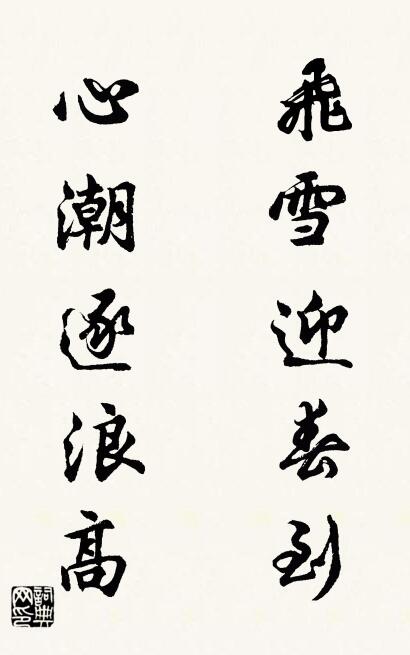 飛雪迎春到
心潮逐浪高
詞典网印